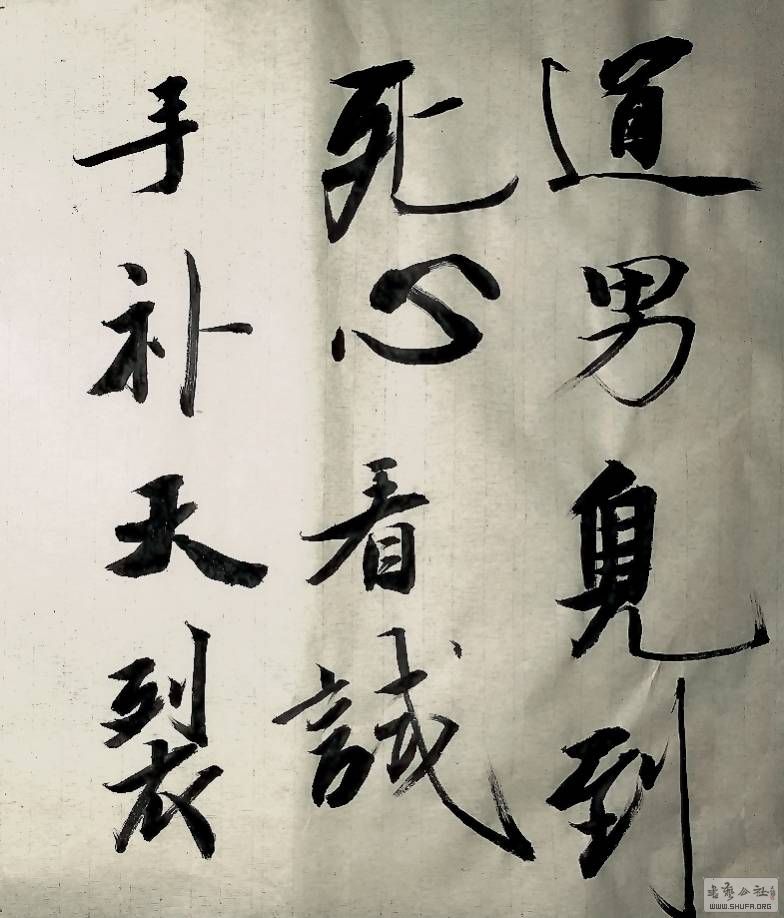 道男兒到
死心看試
手补天裂
书艺公社
WWW.SHUFA.ORG